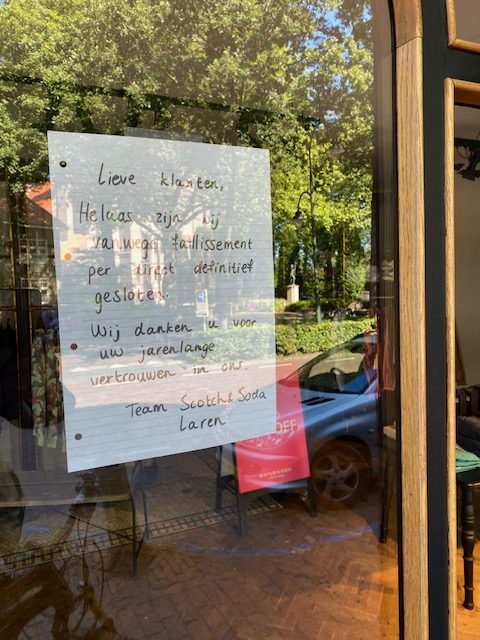 Lieve klanten,
Helaas zijn wij
vanwege faillissement
per direct definitief
gesloten.
Wij danken u voor
uw jarenlange
vertrouwen in ons.
Team Scotch & Soda
Laren
OFF